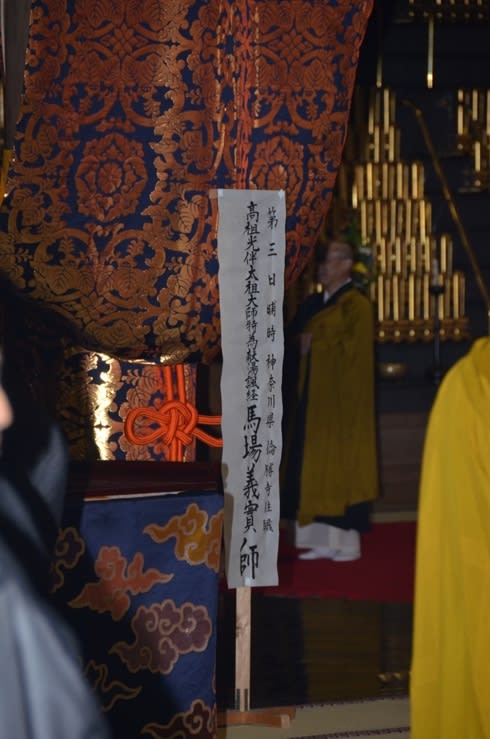 第三日晡時神奈川県倫勝寺住職
高祖光伴太祖大師特為献湯諷経馬場義實師